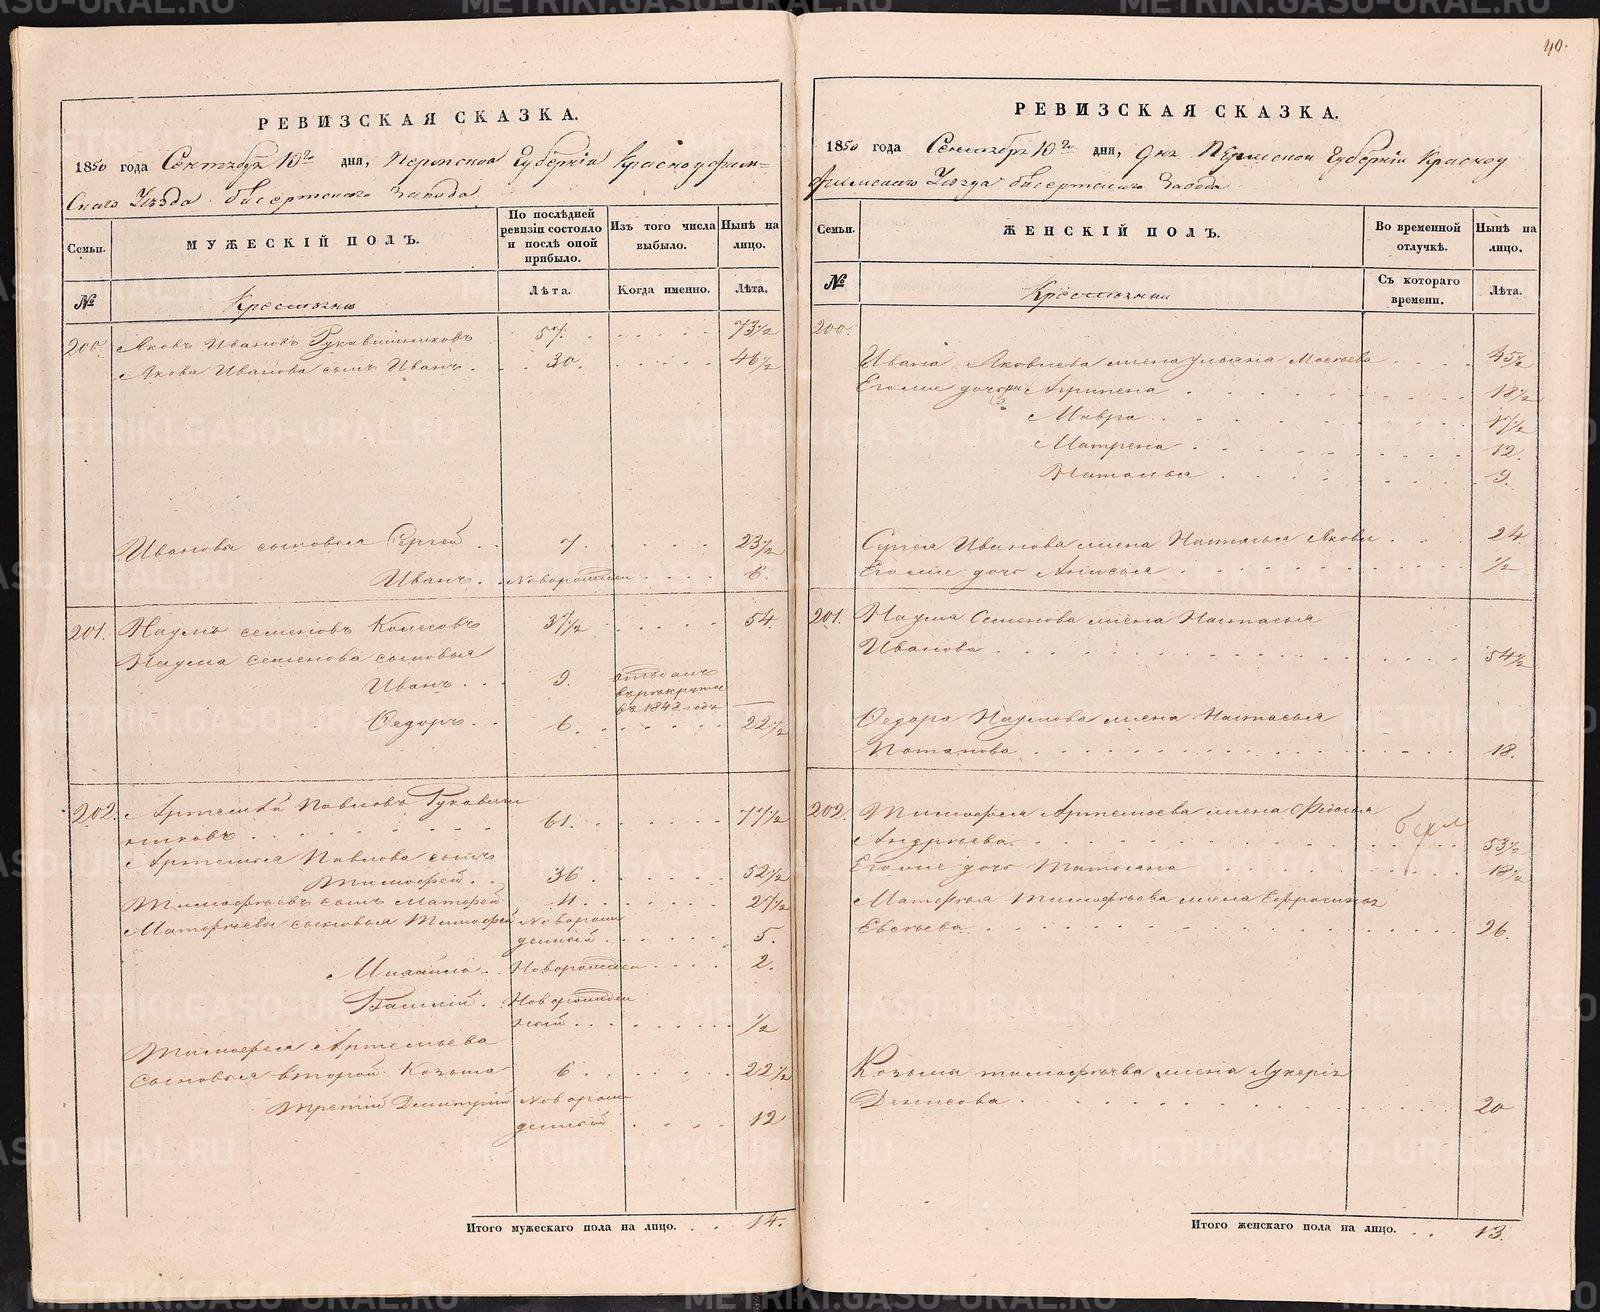 40.
РЕВИЗСКАЯ СКАЗКА.
1850 года Сентября 10го дня, Пермской Губернии Красноуфим-
скаго Уезда Бисертскаго Завода
Семьи.
МУЖЕСКІЙ ПОЛЪ.
По послѣдней ревизіи состояло и послѣ оной прибыло.
Изъ того числа выбыло.
Нынѣ на лицо.
№
Крестьяне
Лѣта.
Когда именно.
Лѣта.
200. Яковъ Ивановъ Рукавишниковъ 57. 73½
Якова Иванова сынъ Иванъ. 30. 46½
Ивановы сыновья Сергей 7. 23½
Иванъ. Новорожден 6.
201. Наумъ Семеновъ Колесовъ 37½ 54
Наума Семенова сыновья
Иванъ. 9. отъданъ
въ рекруты
въ 184 годъ
Федоръ. 6. 22½
202. Артемій Павловъ Рукавиш
никовъ 61. 77½
Артемья Павлова сынъ
Тимофей. 36 52½
Тимофеевъ сынъ Матфей 11. 27½
Матфеевы сыновья Тимофей Поворож
денный. 5.
Михайло. Новорожден 2.
Новорожден
ный ½
Тимофея Артемьева
Сыновья второй Козьма 6 22½
третій Дмитрій Новорож
денный 12
Итого мужескаго пола на лицо. 14.
РЕВИЗСКАЯ СКАЗКА.
1850 года Сентября 10го дня, Пермской Губерніи Красноу
фимскаго Уезда Бисертскаго Завода
Семьи.
ЖЕНСКІЙ ПОЛЪ.
Во временной отлучкѣ.
Нынѣ на лицо.
№
Крестьянки
Съ котораго времени.
Лѣта.
200.
Ивана Яковлева жена Ульяна Мосеева 45½
Егоже дочери Агрипена 18½
Мавра 17½
Матрена 12.
Наталья 9.
Сергея Иванова жена Настасья Яковл 24
Егоже дочь Анисья ½
201. Наума Семенова жена Настасья
Иванова 54½
Федора Наумова жена Настасья
Потапова 18.
202. Тимофея Артемьева жена Федосья
Андреева 53½
Егоже дочь Татьяна 18½
Матфея Тимофеева жена Ефросинья
Евсеева 26.
Козьмы Тимофеева жена Лукерія
Денисова 20
Итого женскаго пола на лицо. 13.
METRIKI.GASO-URAL.RU